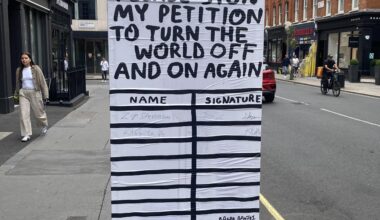 PLEASE SIGN
MY PETITION
TO TURN THE
WORLD OFF
AND ON AGAIN
NAME SIGNATURE